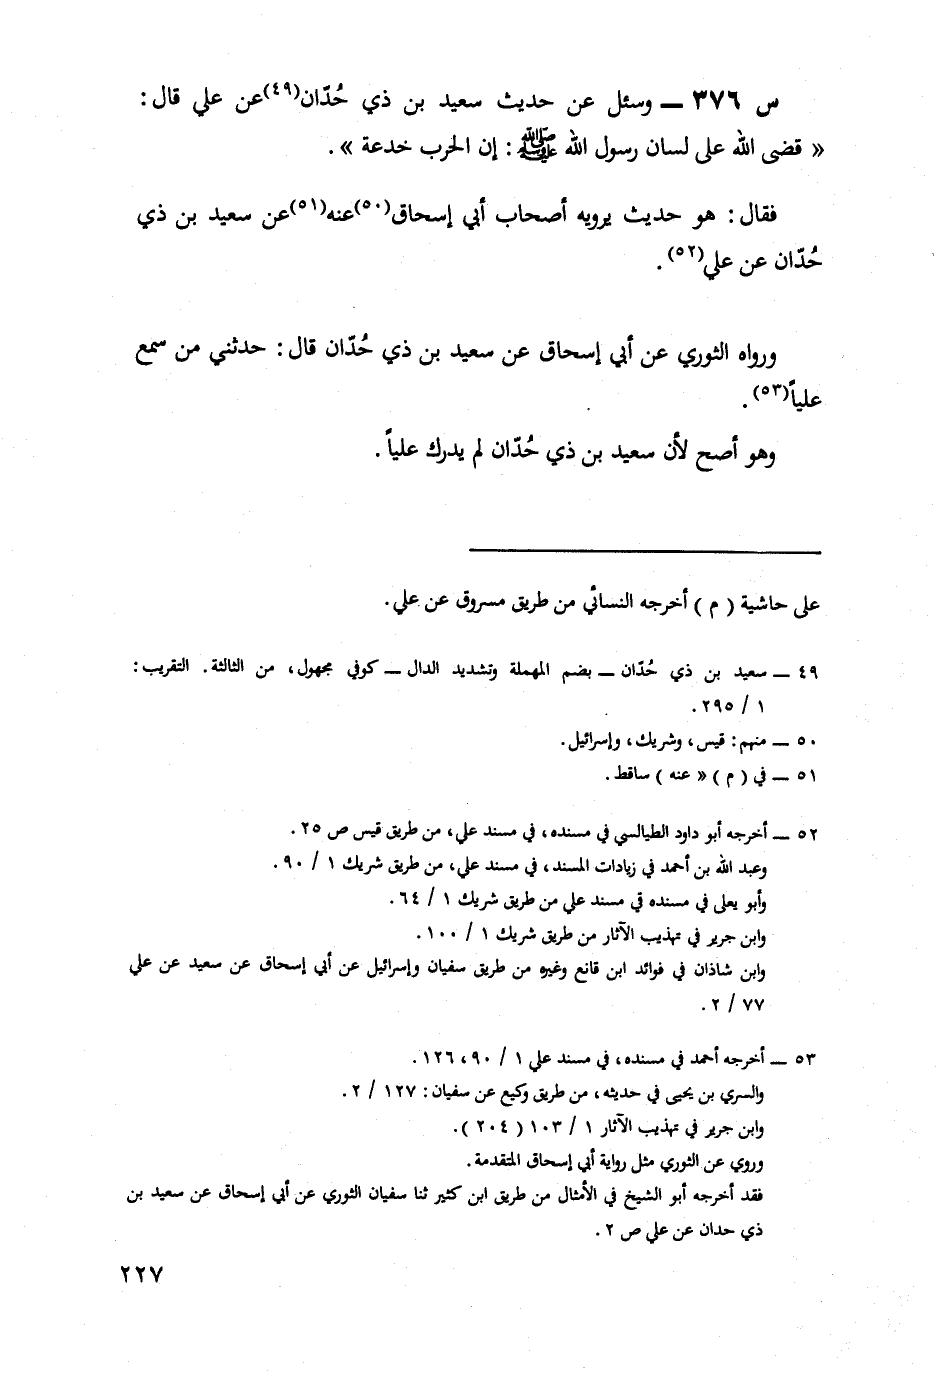 س ٣٧٦ ــ وسئل عن حديث سعيد بن ذي حُدّان(٤٩)عن علي قال :
« قضى الله على لسان رسول الله ﷺ : إن الحرب خدعة » .
فقال : هو حديث يرويه أصحاب أبي إسحاق(٥٠)عنه(٥١)عن سعيد بن ذي
حُدّان عن علي(٥٢) .
ورواه الثوري عن أبي إسحاق عن سعيد بن ذي حُدّان قال : حدثني من سمع
علياً(٥٣) .
وهو أصح لأن سعيد بن ذي حُدّان لم يدرك علياً .
على حاشية ( م ) أخرجه النسائي من طريق مسروق عن علي .
٤٩ ــ سعيد بن ذي حُدّان ــ بضم المهملة وتشديد الدال ــ كوفي مجهول ، من الثالثة . التقريب :
١ / ٢٩٥ .
٥٠ ــ منهم : قيس ، وشريك ، وإسرائيل .
٥١ ــ في ( م ) « عنه ) ساقط .
٥٢ ــ أخرجه أبو داود الطيالسي في مسنده ، في مسند علي ، من طريق قيس ص ٢٥ .
وعبد الله بن أحمد في زيادات المسند ، في مسند علي ، من طريق شريك ١ / ٩٠ .
وأبو يعلى في مسنده في مسند علي من طريق شريك ١ / ٦٤ .
وابن جرير في تهذيب الآثار من طريق شريك ١ / ١٠٠ .
وابن شاذان في فوائد ابن قانع وغيره من طريق سفيان وإسرائيل عن أبي إسحاق عن سعيد عن علي
٧٧ / ٢ .
٥٣ ــ أخرجه أحمد في مسنده ، في مسند علي ١ / ٩٠ ، ١٢٦ .
والسري بن يحيى في حديثه ، من طريق وكيع عن سفيان : ١٢٧ / ٢ .
وابن جرير في تهذيب الآثار ١ / ١٠٣ ( ٢٠٤ ) .
وروي عن الثوري مثل رواية أبي إسحاق المتقدمة .
فقد أخرجه أبو الشيخ في الأمثال من طريق ابن كثير ثنا سفيان الثوري عن أبي إسحاق عن سعيد بن
ذي حدان عن علي ص ٢ .
٢٢٧